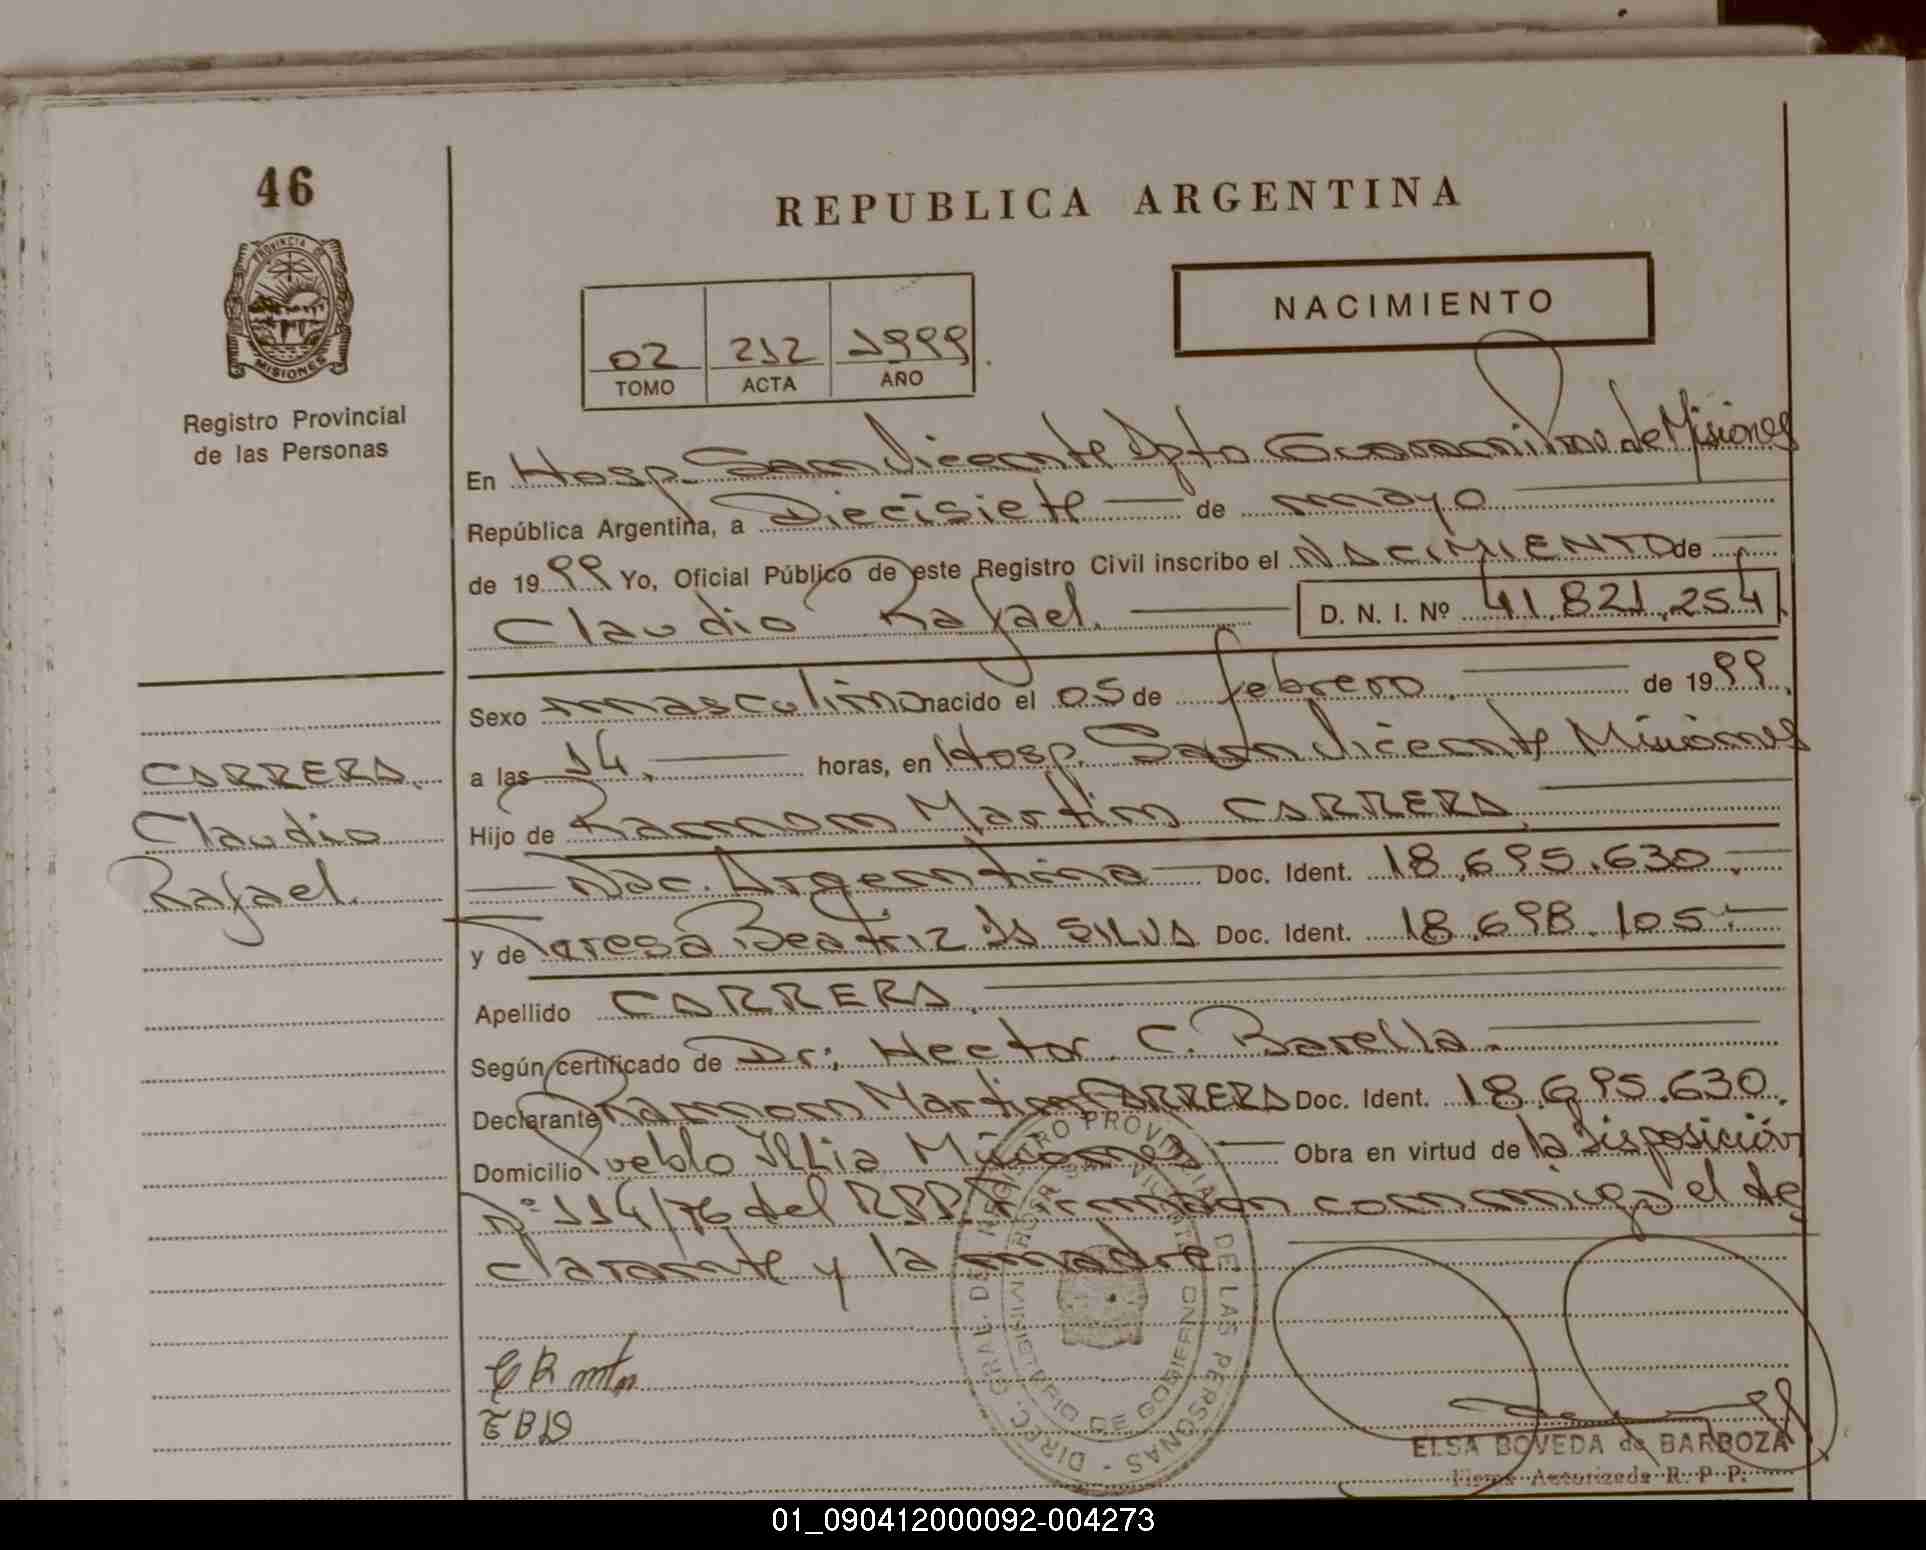 46
REPUBLICA ARGENTINA
PROVINCIA DE
MISIONES
Registro Provincial
de las Personas
NACIMIENTO
02 212 1999
TOMO ACTA AÑO
En Hosp. San Vicente Dpto Guarani Prov. de Misiones
República Argentina, a Diecisiete de mayo
de 1999 Yo, Oficial Público de este Registro Civil inscribo el NACIMIENTO de
Claudio Rafael. D. N. I. Nº 41.821.254
Sexo masculino nacido el 05 de febrero. de 1999.
a las 14. horas, en Hosp. San Vicente Misiones
Hijo de Ramon Martin CARRERA.
Nac. Argentina Doc. Ident. 18.695.630.
y de Teresa Beatriz DA SILVA Doc. Ident. 18.698.105.
Apellido CARRERA.
Según certificado de Dr: Hector C. Barella.
Declarante Ramon Martin CARRERA Doc. Ident. 18.695.630.
Domicilio Pueblo Illia Misiones Obra en virtud de la Disposición
Nº 114/76 del RPP. Firman conmigo el de
clarante y la madre.
CARRERA.
Claudio
Rafael.
DIREC. GRAL. DEL REGISTRO PROVINCIAL DE LAS PERSONAS
MINISTERIO DE GOBIERNO
EBD
ELSA BOVEDA de BARBOZA
Firma Autorizada R. P. P.
01_090412000092-004273